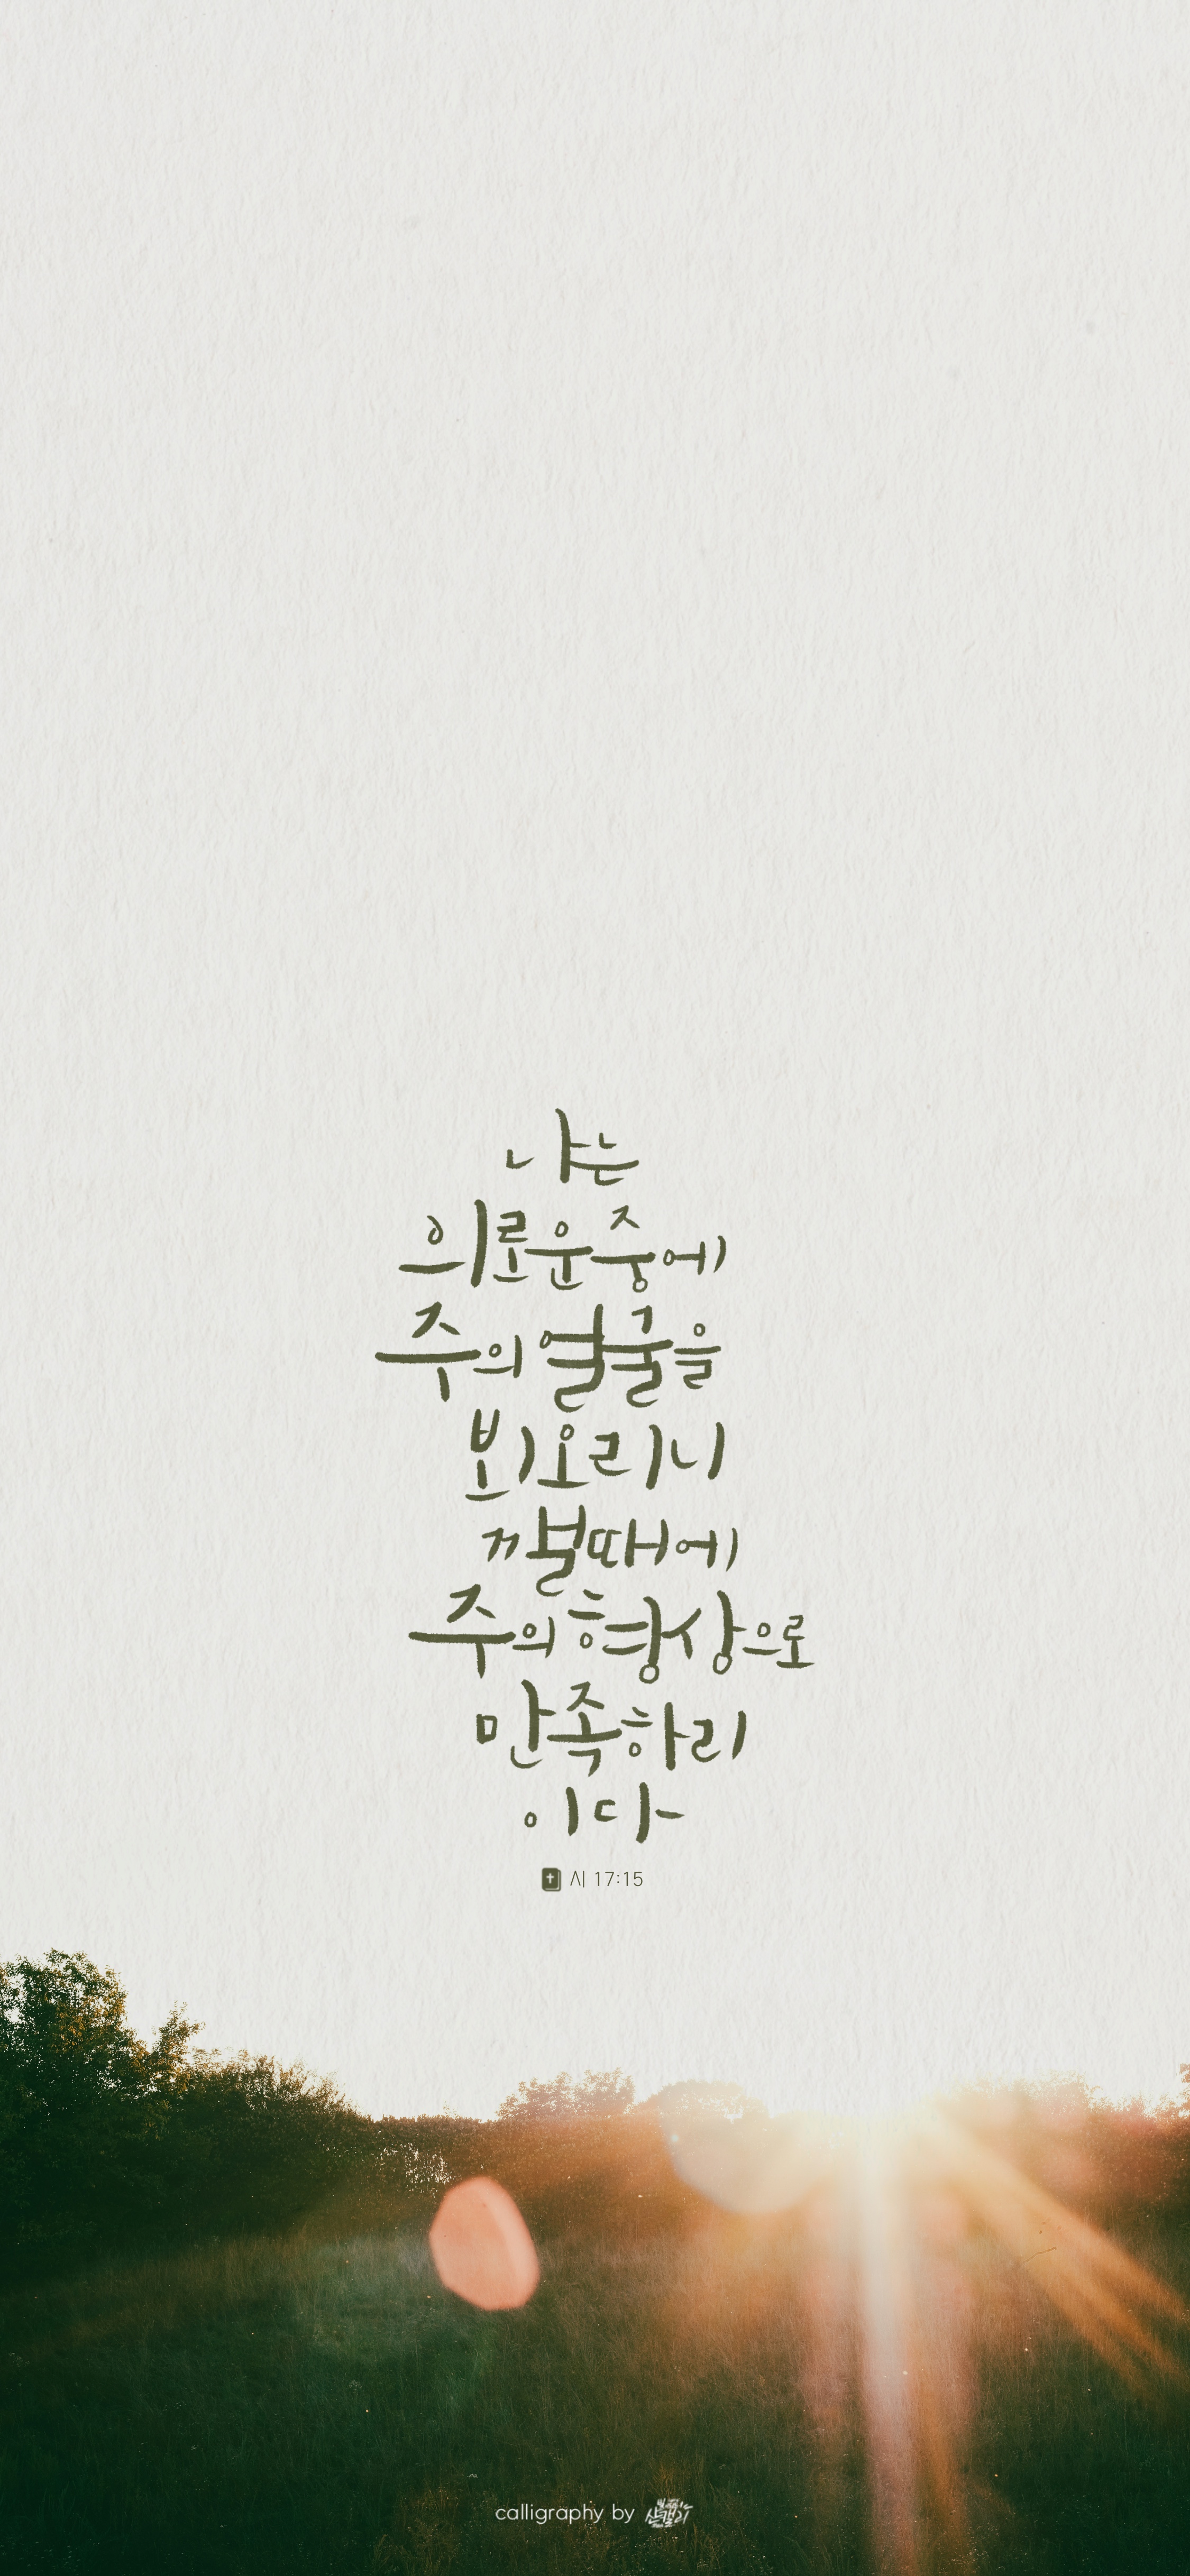 나는
의로운 중에
주의 얼굴을
뵈오리니
깰 때에
주의 형상으로
만족하리
이다
시 17:15
calligraphy by